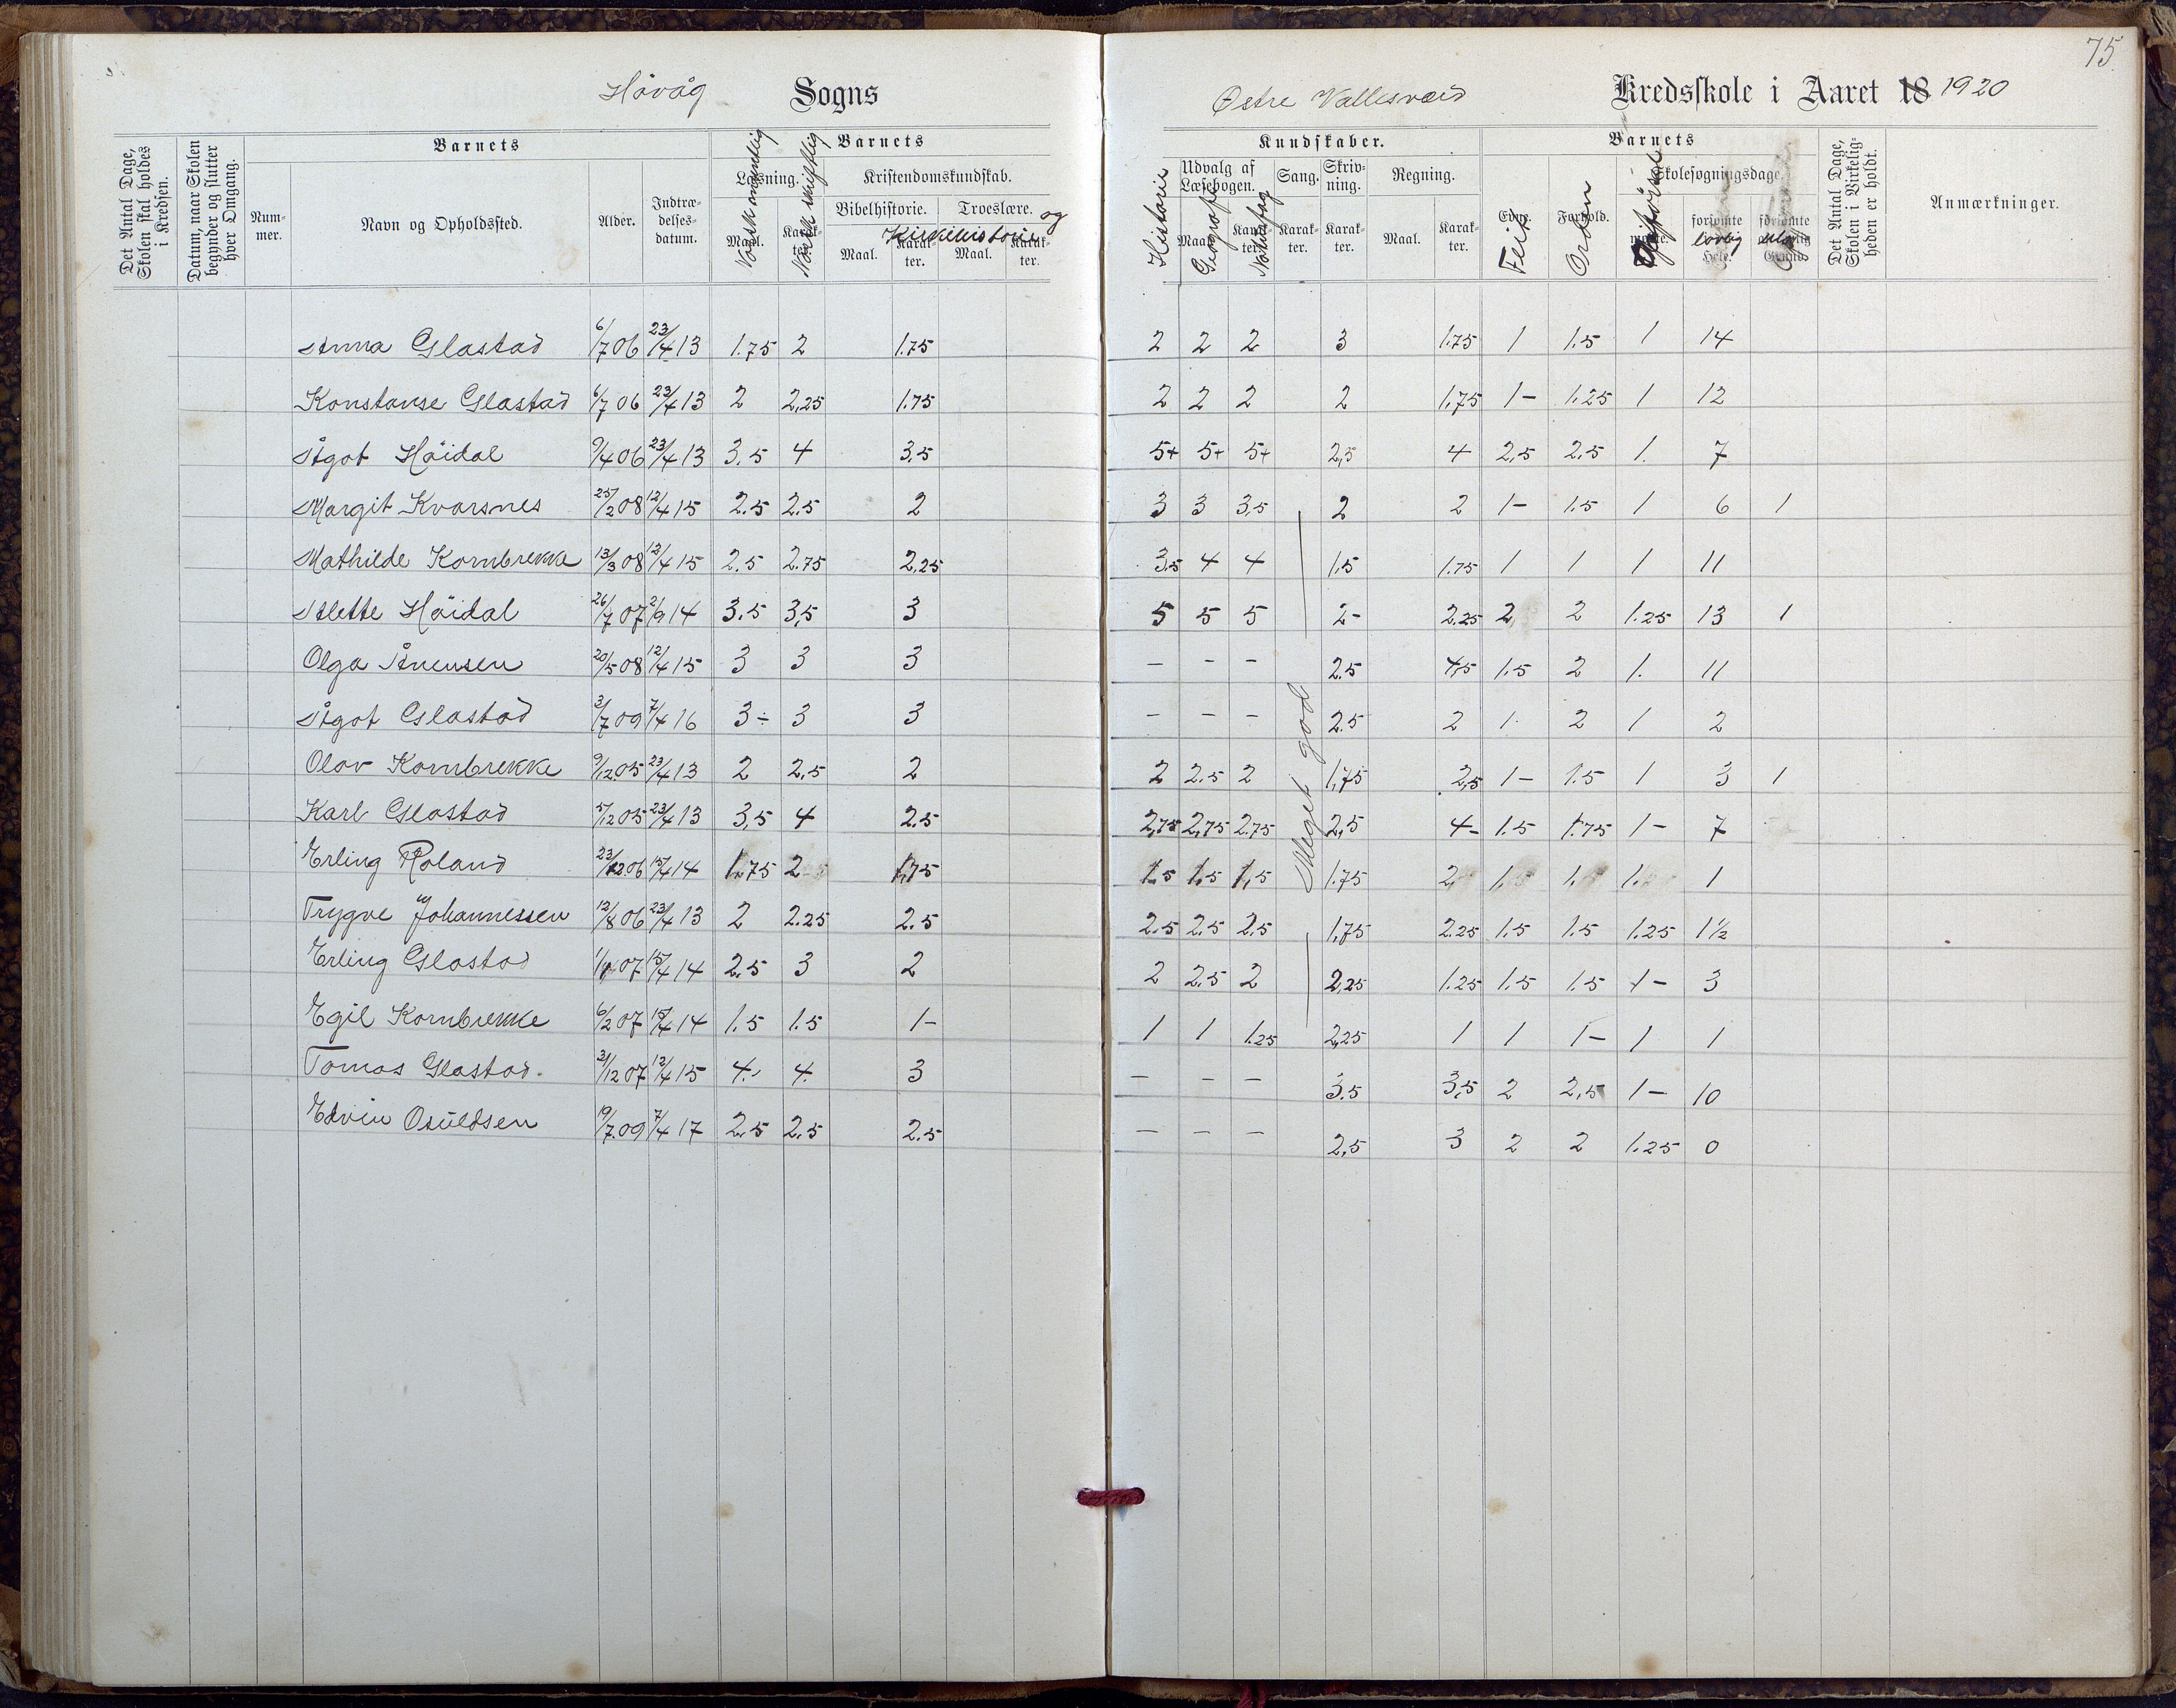 75
Høvåg Sogns
Østre Vallesverd Kredsskole i Aaret 18 1920
Det Antal Dage, Skolen skal holdes i Kredsen.
Datum, naar Skolen begynder og slutter hver Omgang.
Barnets
Nummer.
Navn og Opholdssted.
Alder.
Indtrædelsesdatum.
Barnets
Læsning.
Maal.
Karakter.
Norsk mundtlig
Norsk skriftlig
Kristendomskundskab.
Bibelhistorie.
Troeslære.
og Kirkehistorie
Maal.
Karakter.
Maal.
Karakter.
Kundskaber.
Historie
Udvalg af Læsebogen.
Maal.
Karakter.
Geografi
Naturfag
Sang.
Karakter.
Skrivning.
Karakter.
Regning.
Maal.
Karakter.
Barnets
Evne.
Flit
Forhold.
Orden
Skolesøgningsdage.
Opførsel
forsømte
lovlig
Hele.
forsømte
Grund
Det Antal Dage, Skolen i Virkeligheden er holdt.
Anmærkninger.
Anna Glastad 6/7 06 23/4 13 1.75 2 1.75 2 2 2 3 1.75 1 1.5 1 14
Konstanse Glastad 6/7 06 23/4 13 2 2,25 1.75 2 2 2 2 1,75 1- 1.25 1 12
Ågot Høidal 9/4 06 23/4 13 3.5 4 3.5 5+ 5+ 5+ 2,5 4 2,5 2.5 1. 7
Margit Kvarsnes 25/2 08 12/4 15 2.5 2.5 2 3 3 3,5 2 2 1- 1.5 1 6 1
Mathilde Kornbrekke 13/3 08 12/4 15 2.5 2.75 2,25 3,5 4 4 1.5 1.75 1 1 1 11
Alette Høidal 26/7 07 2/9 14 3.5 3,5 3 5 5 5 2- 2.25 2 2 1.25 13 1
Olga Ånensen 20/5 08 12/4 15 3 3 3 - - - 2.5 4,5 1.5 2 1. 11
Ågot Glastad 3/7 09 7/4 16 3- 3 3 - - - 2.5 2 1. 2 1 2
Olav Kornbrekke 9/12 05 23/4 13 2 2,5 2 2 2.5 2 1,75 2,5 1- 1.5 1 3 1
Karl Glastad 5/12 05 23/4 13 3,5 4 2.5 2,75 2,75 2.75 2,5 4- 1.5 1.75 1- 7
Erling Roland 23/12 06 15/4 14 1.75 2 1,75 1.5 1.5 1,5 1.75 2 1. 1. 1. 1
Trygve Johannessen 12/8 06 23/4 13 2 2.25 2.5 2.5 2.5 2.5 1,75 2.25 1.5 1.5 1.25 1½
Erling Glastad 1/1 07 15/4 14 2.5 3 2 2 2.5 2 2,25 1.25 1.5 1.5 1- 3
Egil Kornbrekke 6/2 07 15/4 14 1.5 1.5 1- 1 1 1.25 2,25 1 1 1- 1 1
Tomas Glastad. 31/12 07 12/4 15 4. 4. 3 - - - 3.5 3,5 2 2,5 1- 10
Edvin Osuldsen 19/7 09 7/4 17 2.5 2.5 2.5 - - - 2,5 3 2 2 1.25 0
Meget god